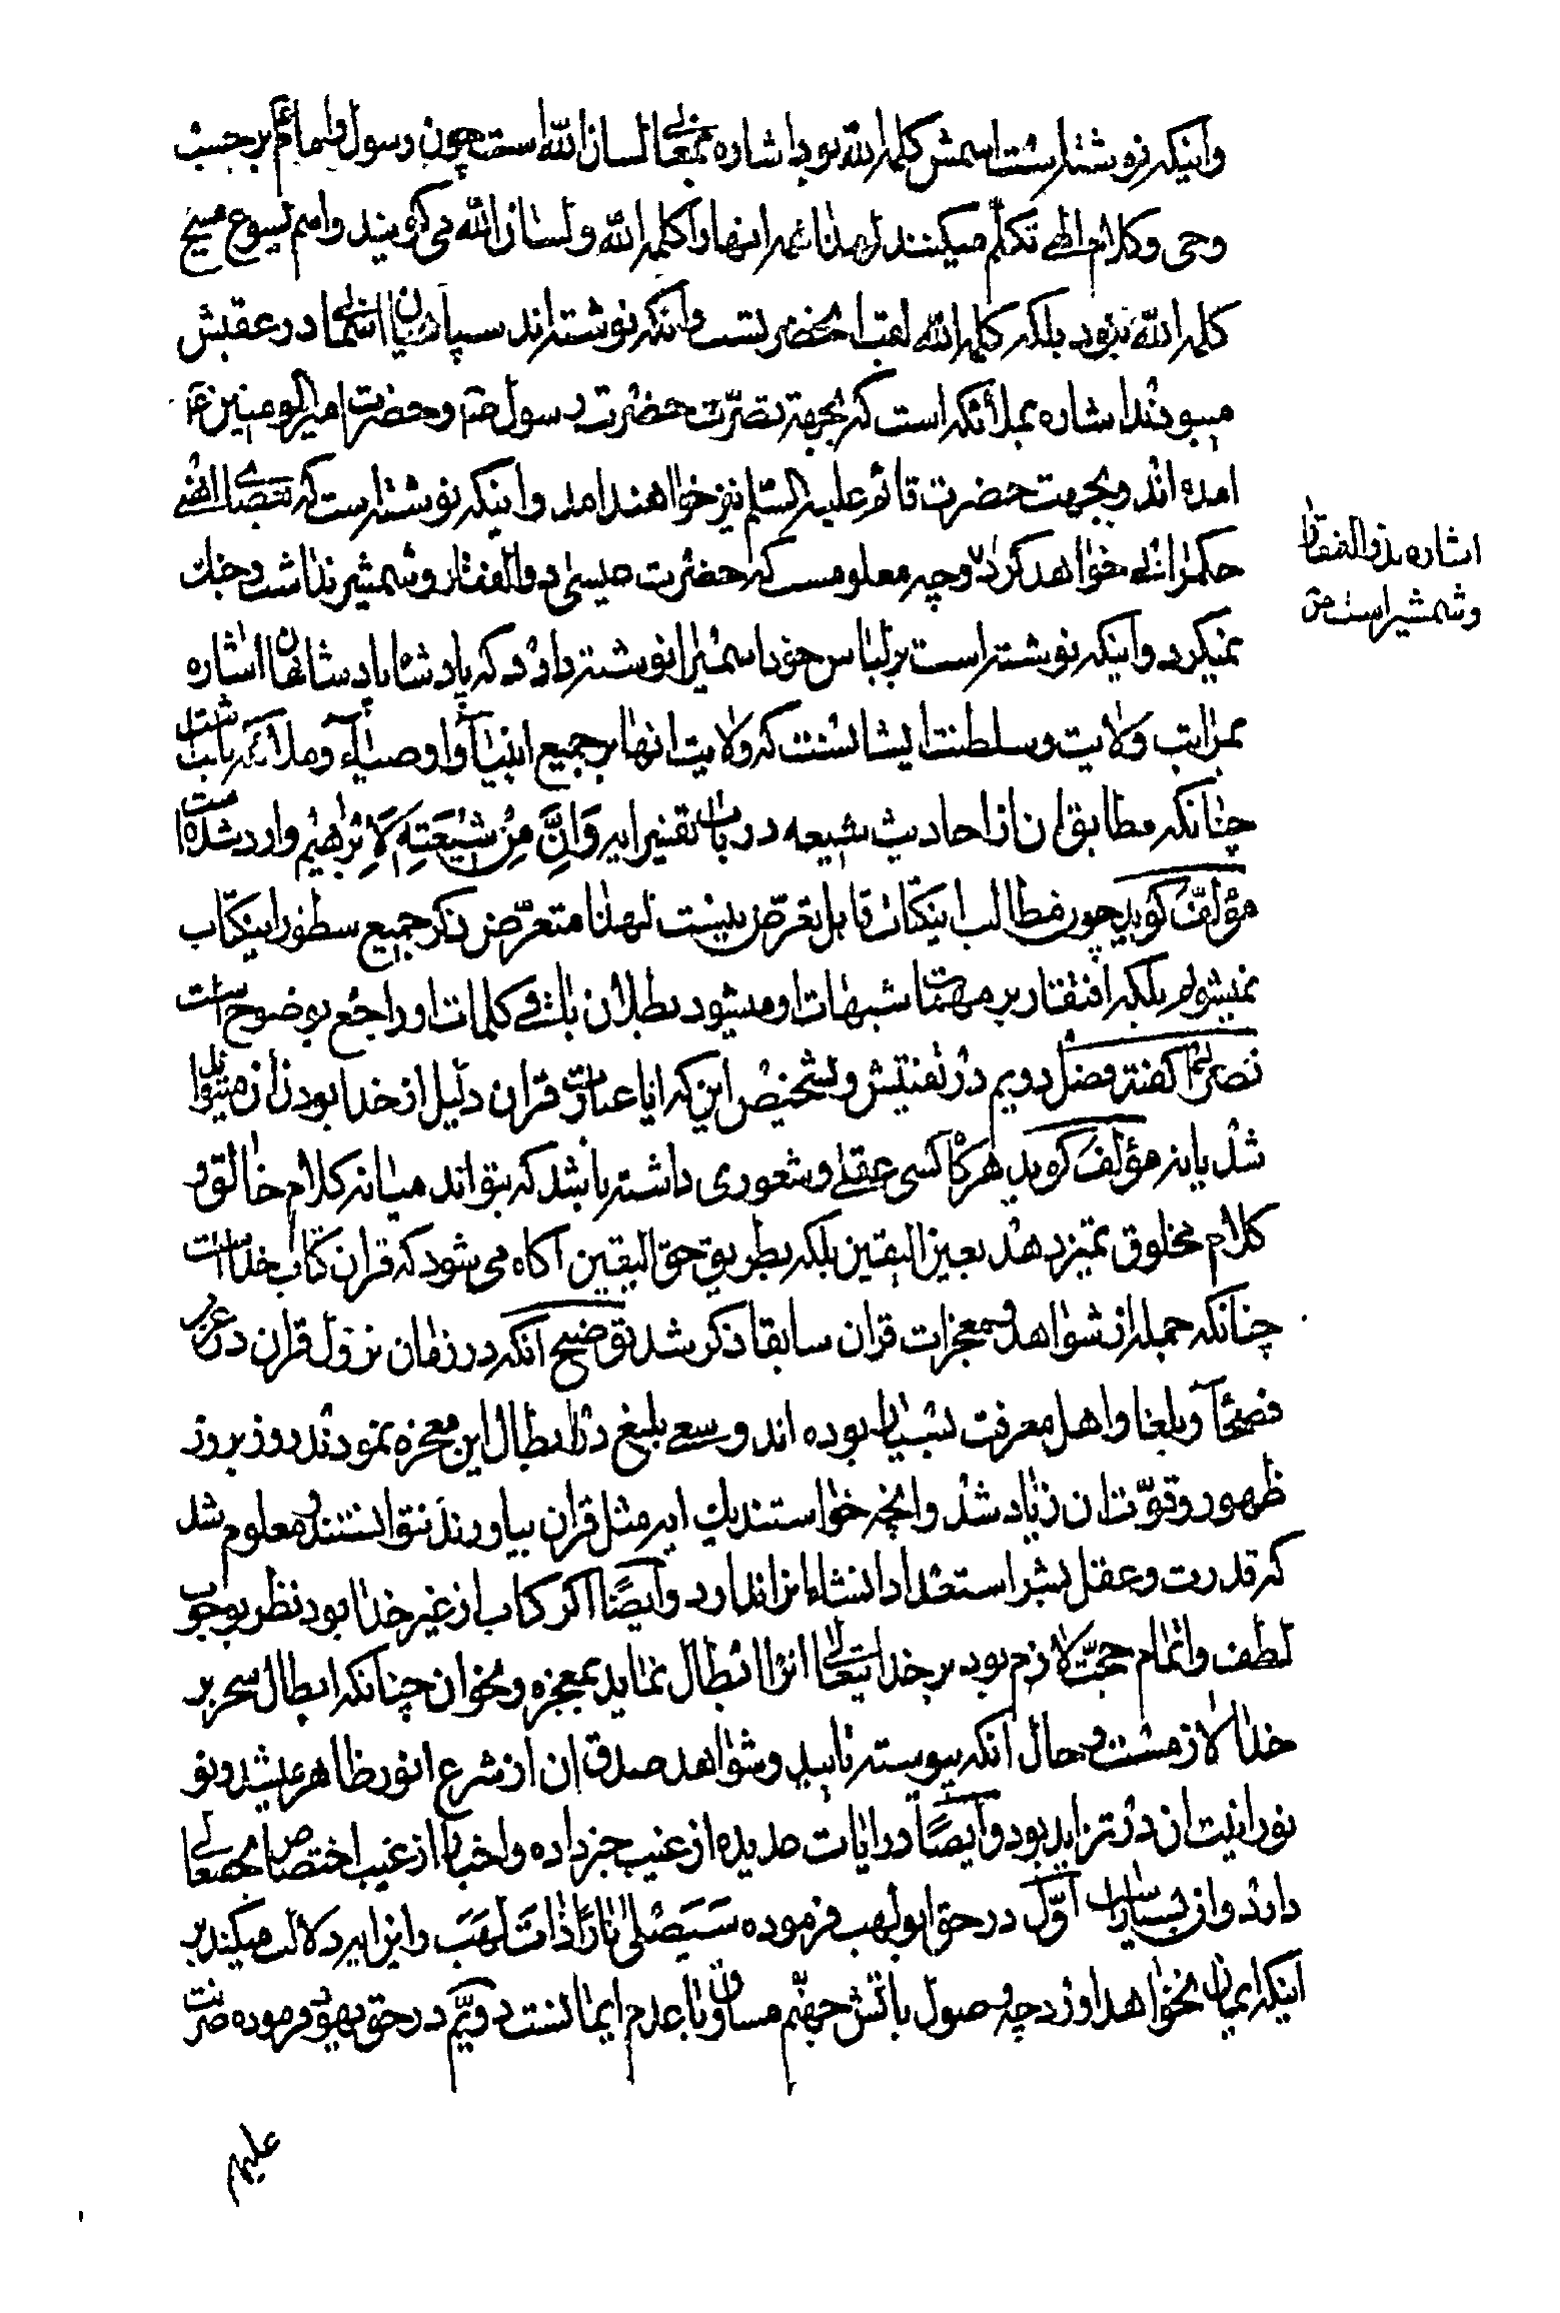 واینکه نوشته است اسمش کلمة الله بود اشاره بمعنای لسان الله است چون رسول و امام ع بر حسب
وحی و کلام الهی تکلم میکنند لهذا همه اینها را کلمة الله و لسان الله می کویند و اسم یسوع مسیح
کلمة الله نبود بلکه کلمة الله لقب انحضرتست و انکه نوشته اند سپاهیان اسمانی در عقبش
میبودند اشاره بملائکه است که بجهة نصرت حضرت رسول ص و حضرت امیرالمومنین ع
امده اند و بجهت حضرت قائم علیه السلم نیز خواهند امد و اینکه نوشته است که بعصای اهنی
حکمرانی خواهد کرد وچه معلومست که حضرت عیسی ذوالفقار و شمشیر نداشت و جنك
نمیکرد و اینکه نوشته است بر لباس خود اسمی را نوشته دارد که پادشاه پادشاهان اشاره
بمراتب ولایت و سلطنت ایشانست که ولایت انها بر جمیع انبیآء و اوصیآء و ملائکه ثابت شده است
چنانکه مطابق ان از احادیث شیعه در باب تفسیر ایه وَاِنَّ مِنْ شیعَتِهِ لَاِبْرٰهیمَ وارد شده است
مؤلف کوید چون مطالب اینکتاب قابل تعرض نیست لهذا متعرض ذکر جمیع سطور اینکتاب
نمیشوم بلکه اقتصار بر مهمات شبهات او میشود بطلان باقی کلمات او راجع بوضوح است
نصرانی کفته فصل دویم در تفتیش و تشخیص این که ایا عبارت قران دلیل از خدا بودن ان میتواند
شد یا نه مؤلف کوید هر کاه کسی عقلی و شعوری داشته باشد که بتواند میانه کلام خالق و
کلام مخلوق تمیز دهد بعین الیقین بلکه بطریق حق الیقین آکاه می شود که قران کتاب خداست
چنانکه جمله از شواهد و معجزات قران سابقا ذکر شد توضیح آنکه در زمان نزول قران در عرب
فصحآء و بلغا و اهل معرفت بسیار بوده اند و سعی بلیغ در ابطال این معجزه نمودند روز بروز
ظهور و قوت ان زیاد شد و انچه خواستند یك ایه مثل قران بیاورند نتوانستند و معلوم شد
که قدرت و عقل بشر استعداد انشاء انرا ندارد و ایضًا اکر کتاب از غیر خدا بود نظر بوجوب
لطف و اتمام حجت لازم بود بر خدایتعالی انرا ابطال نماید بمعجزه و نحو ان چنانکه ابطال سحر بر
خدا لازمست و حال آنکه پیوسته تایید و شواهد صدق ان از شرع انور ظاهر میشد و نو
نورانیت ان در تزاید بود و ایضًا در ایات عدیده از غیب خبر داده و اخبار از غیب اختصاص بحقتعالی
دارد و ان بسیار است اوّل در حق ابولهب فرموده سَیَصْلٰی نارًا ذاتَ لَهَبَ و این ایه دلالت میکند بر
اینکه ایمان نخواهد اورد چه وصول باتش جهنم مساوق با عدم ایمانست دویّم در حق یهود فرموده ضربت
علیهم
اشاره بذوالفقار
و شمشیر است من